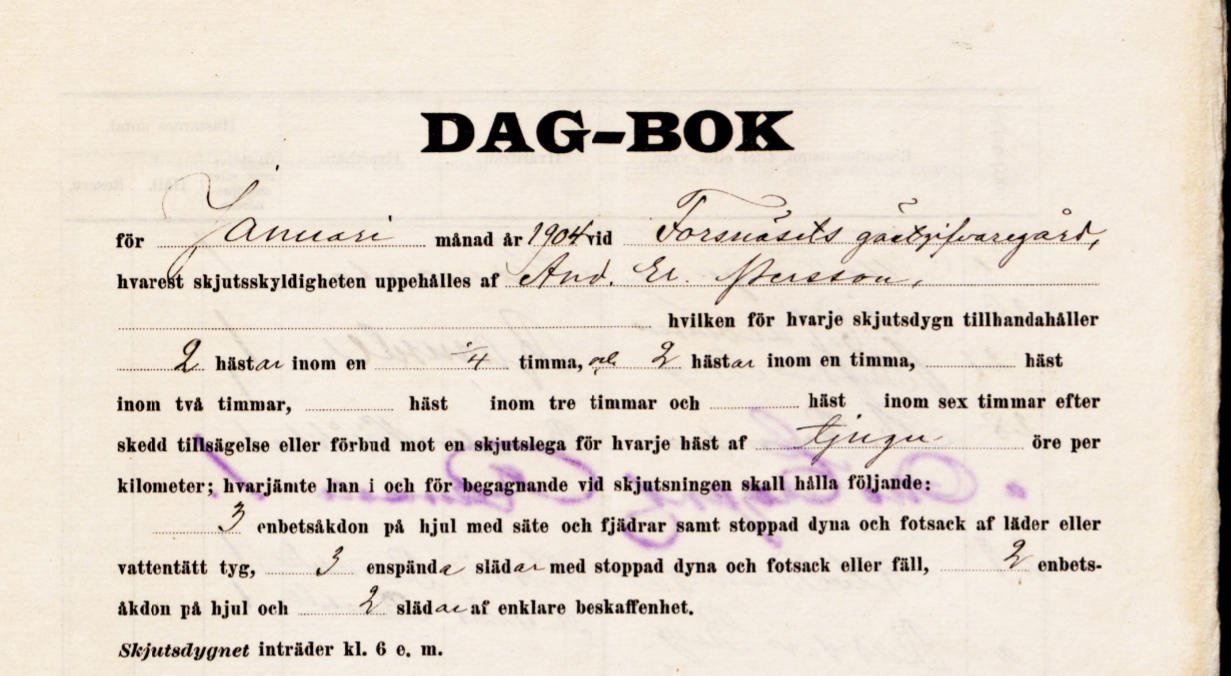 DAG-BOK
för Januari månad år 1904 vid Forsnäsets gästgifvaregård,
hvarest skjutsskyldigheten uppehålles af And. Er. Persson,
hvilken för hvarje skjutsdygn tillhandahåller
2 hästar inom en 1/4 timma, och 2 hästar inom en timma, häst
inom två timmar, häst inom tre timmar och häst inom sex timmar efter
skedd tillsägelse eller förbud mot en skjutslega för hvarje häst af tjugu öre per
kilometer; hvarjämte han i och för begagnande vid skjutsningen skall hålla följande:
3 enbetsåkdon på hjul med säte och fjädrar samt stoppad dyna och fotsack af läder eller
vattentätt tyg, 3 enspända slädar med stoppad dyna och fotsack eller fäll, 2 enbets-
åkdon på hjul och 2 slädar af enklare beskaffenhet.
Skjutsdygnet inträder kl. 6 e. m.